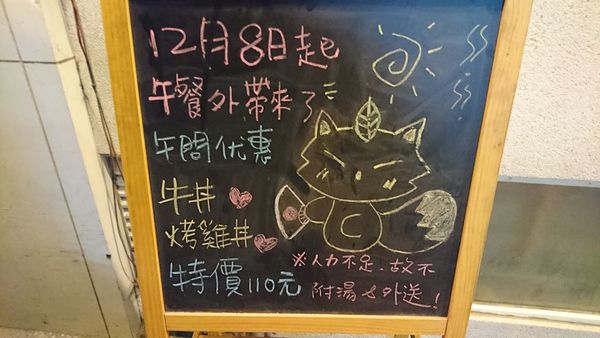 12月8日起
午餐外帶來了
午間优惠
牛丼
烤雞丼
特價110元
※人力不足.故不
附湯&外送!